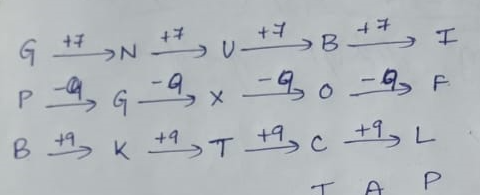 G +7→ N +7→ U +7→ B +7→ I
P -9→ G -9→ X -9→ O -9→ F
B +9→ K +9→ T +9→ C +9→ L
A P